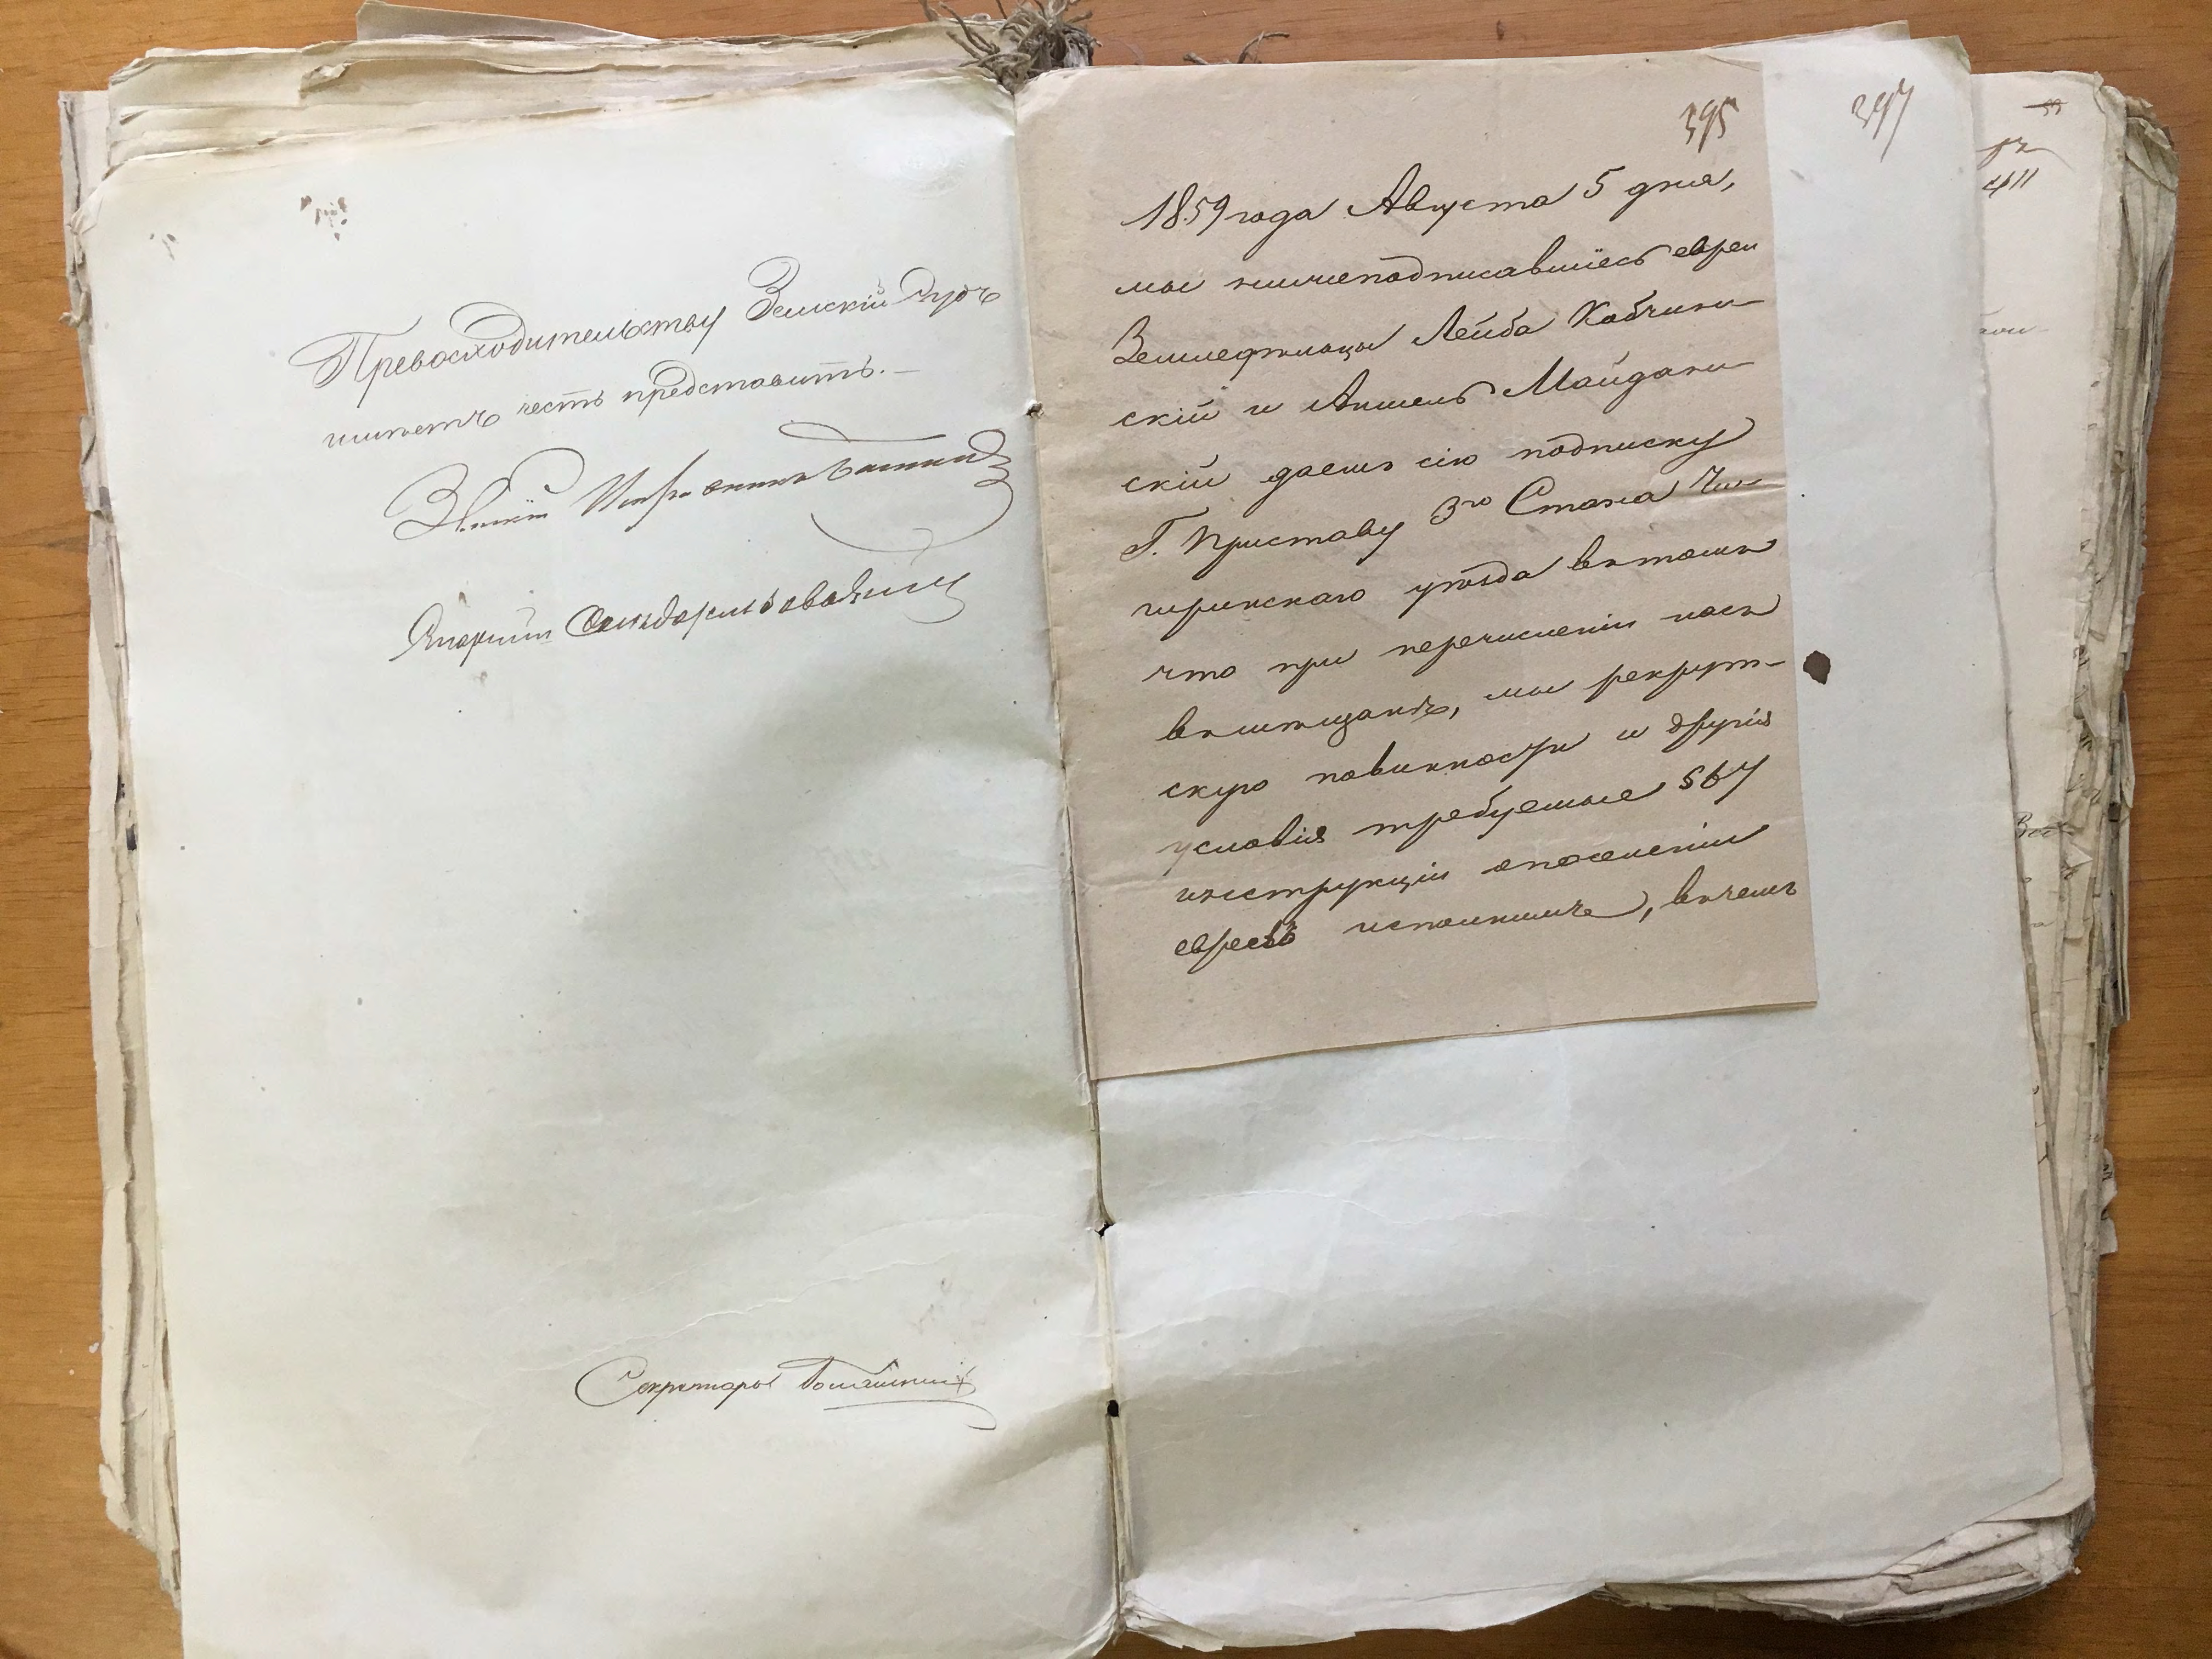 Превосходительству Земскій Судъ
имѣетъ честь представить.
Земскій Исправникъ
Секретарь
395
397
1859 года Августа 5 дня,
мы нижеподписавшіесь евреи
Земледѣльцы Лейба Кобчин-
скій и Аншель Майдан-
скій даемъ сію подписку
Г. Приставу 3го Стана Чи-
гиринскаго уѣзда въ томъ
что при перечисленіи насъ
въ мѣщанъ, мы рекрут-
скую повинность и другія
условія требуемые § 67
инструкціи о поселеніи
евреевъ исполнимъ, въ чемъ
411